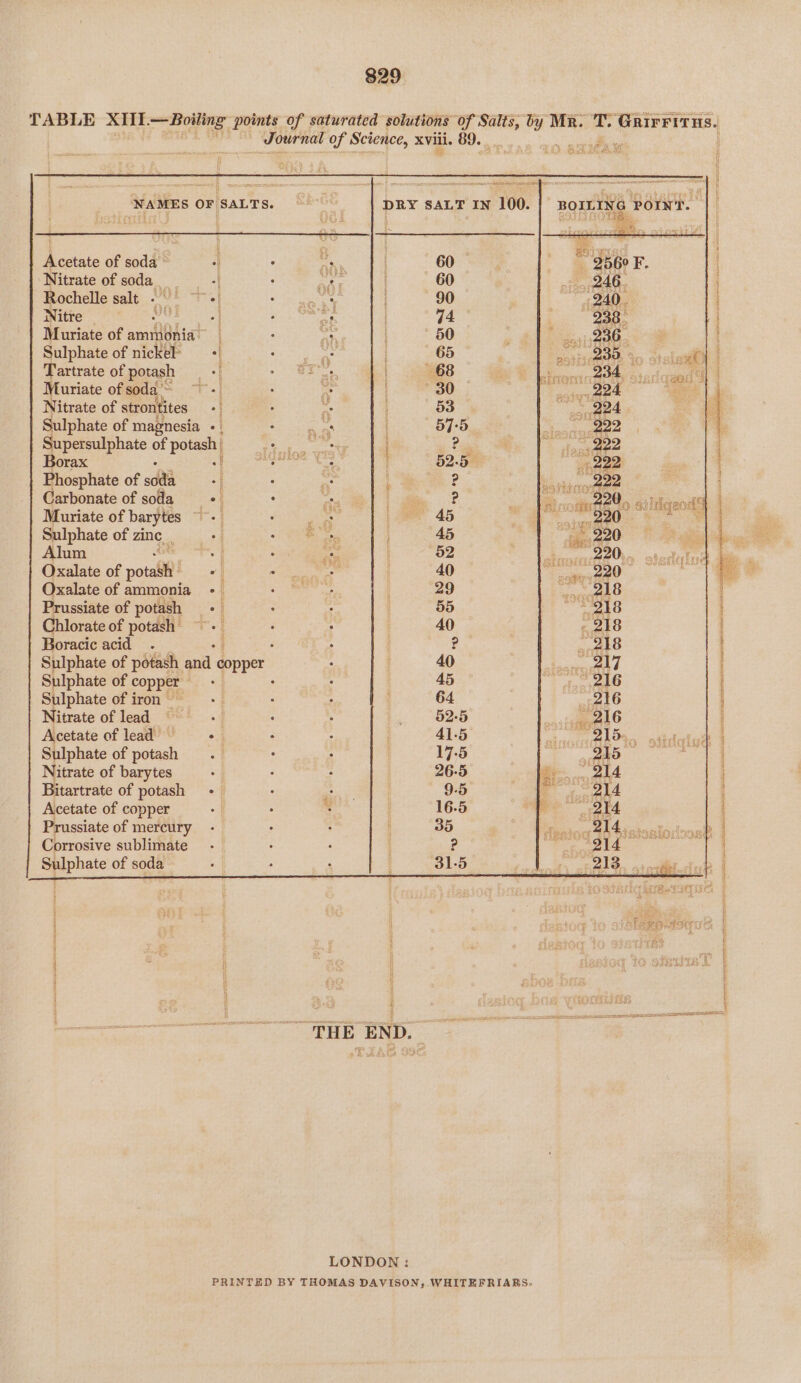 829
TABLE XIII.—Boiling points of saturated solutions of Salts, by MR. T. GRIFFITHS.
Journal of Science, xviii. 89.
NAMES OF SALTS. DRY SALT IN 100. BOILING POINT.
Acetate of soda 60 256º F.
Nitrate of soda 60 246
Rochelle salt 90 240
Nitre 74 238
Muriate of ammonia 50 236
Sulphate of nickel 65 235
Tartrate of potash 68 234
Muriate of soda 30 224
Nitrate of strontites 53 224
Sulphate of magnesia 57·5 222
Supersulphate of potash ? 222
Borax 52·5 222
Phosphate of soda ? 222
Carbonate of soda ? 220
Muriate of barytes 45 220
Sulphate of zinc 45 220
Alum 52 220
Oxalate of potash 40 220
Oxalate of ammonia 29 218
Prussiate of potash 55 218
Chlorate of potash 40 218
Boracic acid ? 218
Sulphate of potash and copper 40 217
Sulphate of copper 45 216
Sulphate of iron 64 216
Nitrate of lead 52·5 216
Acetate of lead 41·5 215
Sulphate of potash 17·5 215
Nitrate of barytes 26·5 214
Bitartrate of potash 9·5 214
Acetate of copper 16·5 214
Prussiate of mercury 35 214
Corrosive sublimate ? 214
Sulphate of soda 31·5 213
THE END.
LONDON:
PRINTED BY THOMAS DAVISON, WHITEFRIARS.